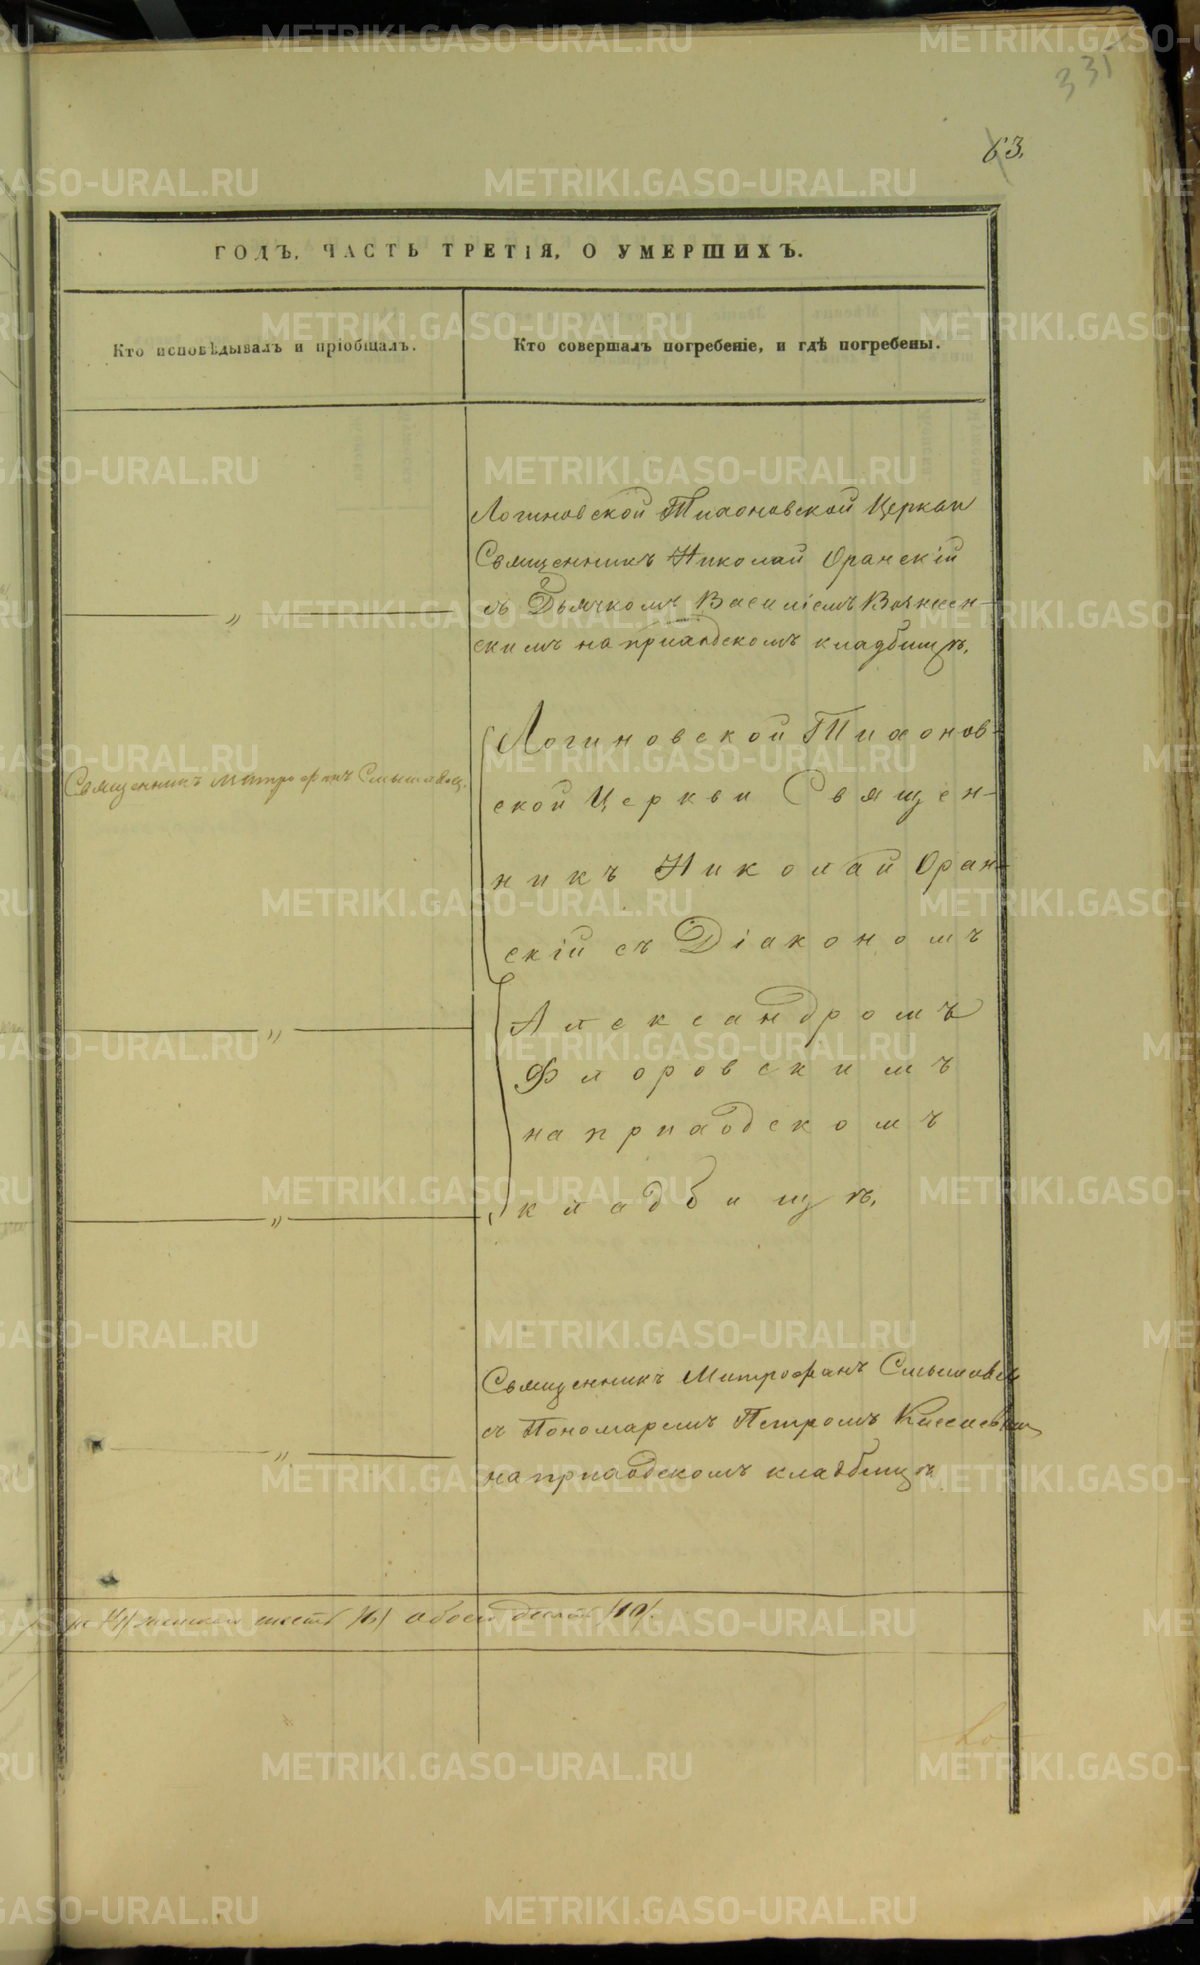 335
63.
ГОДЪ, ЧАСТЬ ТРЕТІЯ, О УМЕРШИХЪ.
Кто исповѣдывалъ и пріобщалъ.
Кто совершалъ погребеніе, и гдѣ погребены.
Логиновской Тихоновской Церкви
Священникъ Николай Оранскій
съ Дьячкомъ Василіемъ Вознесен-
скимъ на приходскомъ кладбищѣ.
„
Священникъ Митрофанъ
Логиновской Тихонов-
ской Церкви Священ-
никъ Николай Оран-
скій съ Діакономъ
Александромъ
Флоровскимъ
на приходскомъ
кладбищѣ.
„
„
Священникъ Митрофанъ
съ Пономаремъ Петромъ
на приходскомъ кладбищѣ
„
/4/ женска шесть /6/ обоего десять /10/.
METRIKI.GASO-URAL.RU